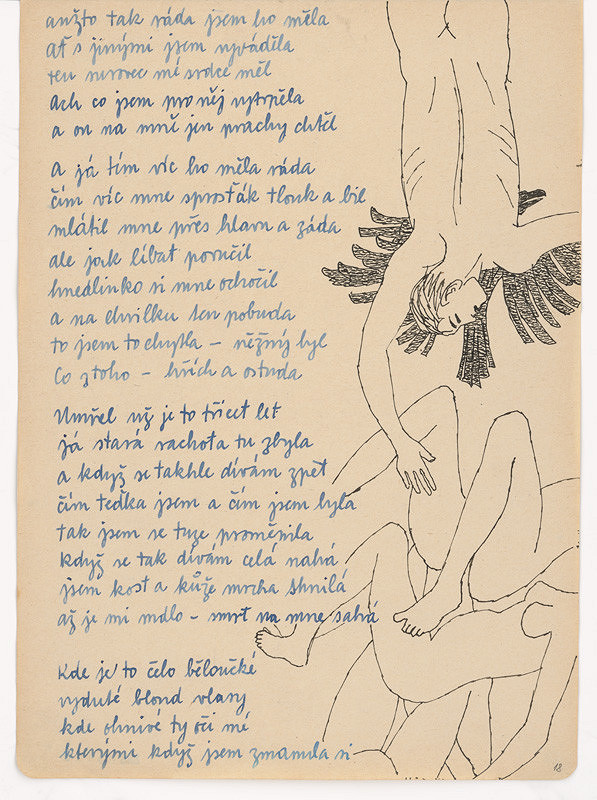 anžto tak ráda jsem ho měla
ať s jinými jsem vyváděla
ten mrvec mé srdce měl
ach co jsem pro něj vytrpěla
a on na mně jen prachy chtěl
a já tím víc ho měla ráda
čím víc mne sprosťák tlouk a bil
mlátil mne přes hlavu a záda
ale jak líbat poručil
hnedlinko si mne ochočil
a na chvilku ten pobuda
to jsem to chytla – něžný byl
Co z toho – hřích a ostuda
Umřel už je to třicet let
já stará rachota tu zbyla
a když se takhle dívám zpět
čím teďka jsem a čím jsem byla
tak jsem se tuze proměnila
když se tak dívám celá nahá
jsem kost a kůže mrcha shnilá
až je mi mdlo – smrt na mne sahá
Kde je to čelo běloučké
vzduté blond vlasy
kde ohnivé ty oči mé
kterými když jsem zmámila si
18